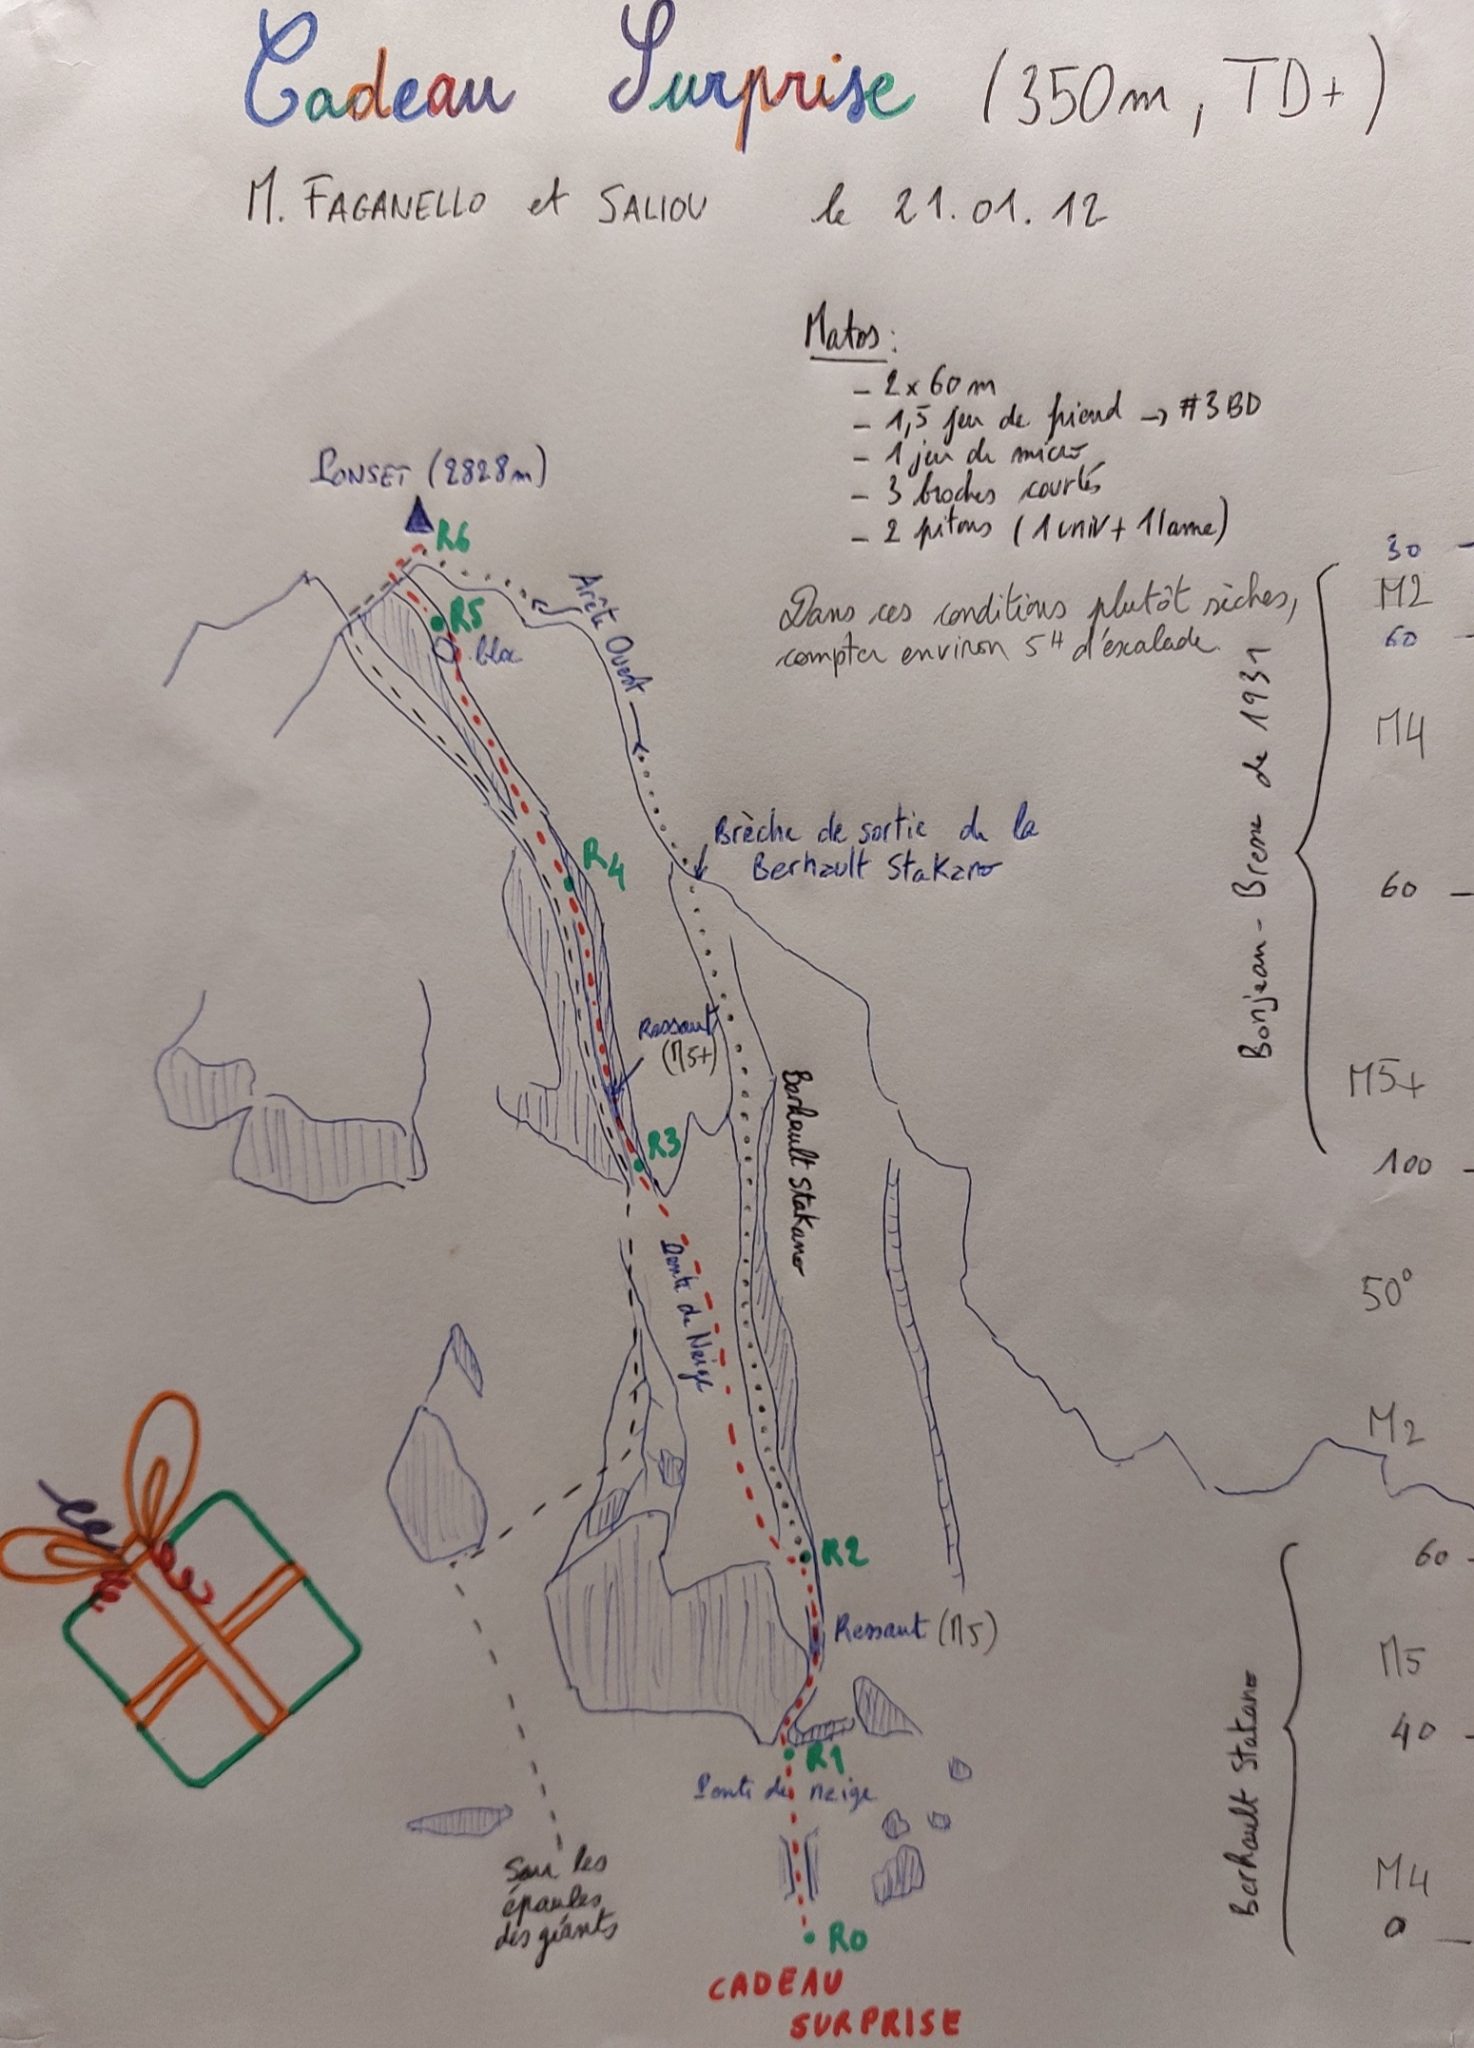 Cadeau Surprise (350m, TD+)
M. FAGANELLO et SALIOU le 21.01.12
Matos :
- 2 x 60 m
- 1,5 jeu de friend → #3 BD
- 1 jeu de micro
- 3 broches courtes
- 2 pitons (1 univ + 1 lame)
Dans ces conditions plutôt sèches,
compter environ 5H d'escalade.
PONSET (2828m)
R6
R5
bloc
Arête Ouest
Brèche de sortie de la
Berhault Stakano
R4
Ressaut
(M5+)
Berhault Stakano
R3
Pente de Neige
R2
Ressaut (M5)
R1
Pente de neige
Sur les
épaules
des géants
R0
CADEAU
SURPRISE
30
M2
60
M4
60
M5+
100
Bonjean - Breme de 1931
50°
M2
60
M5
40
M4
0
Berhault Stakano